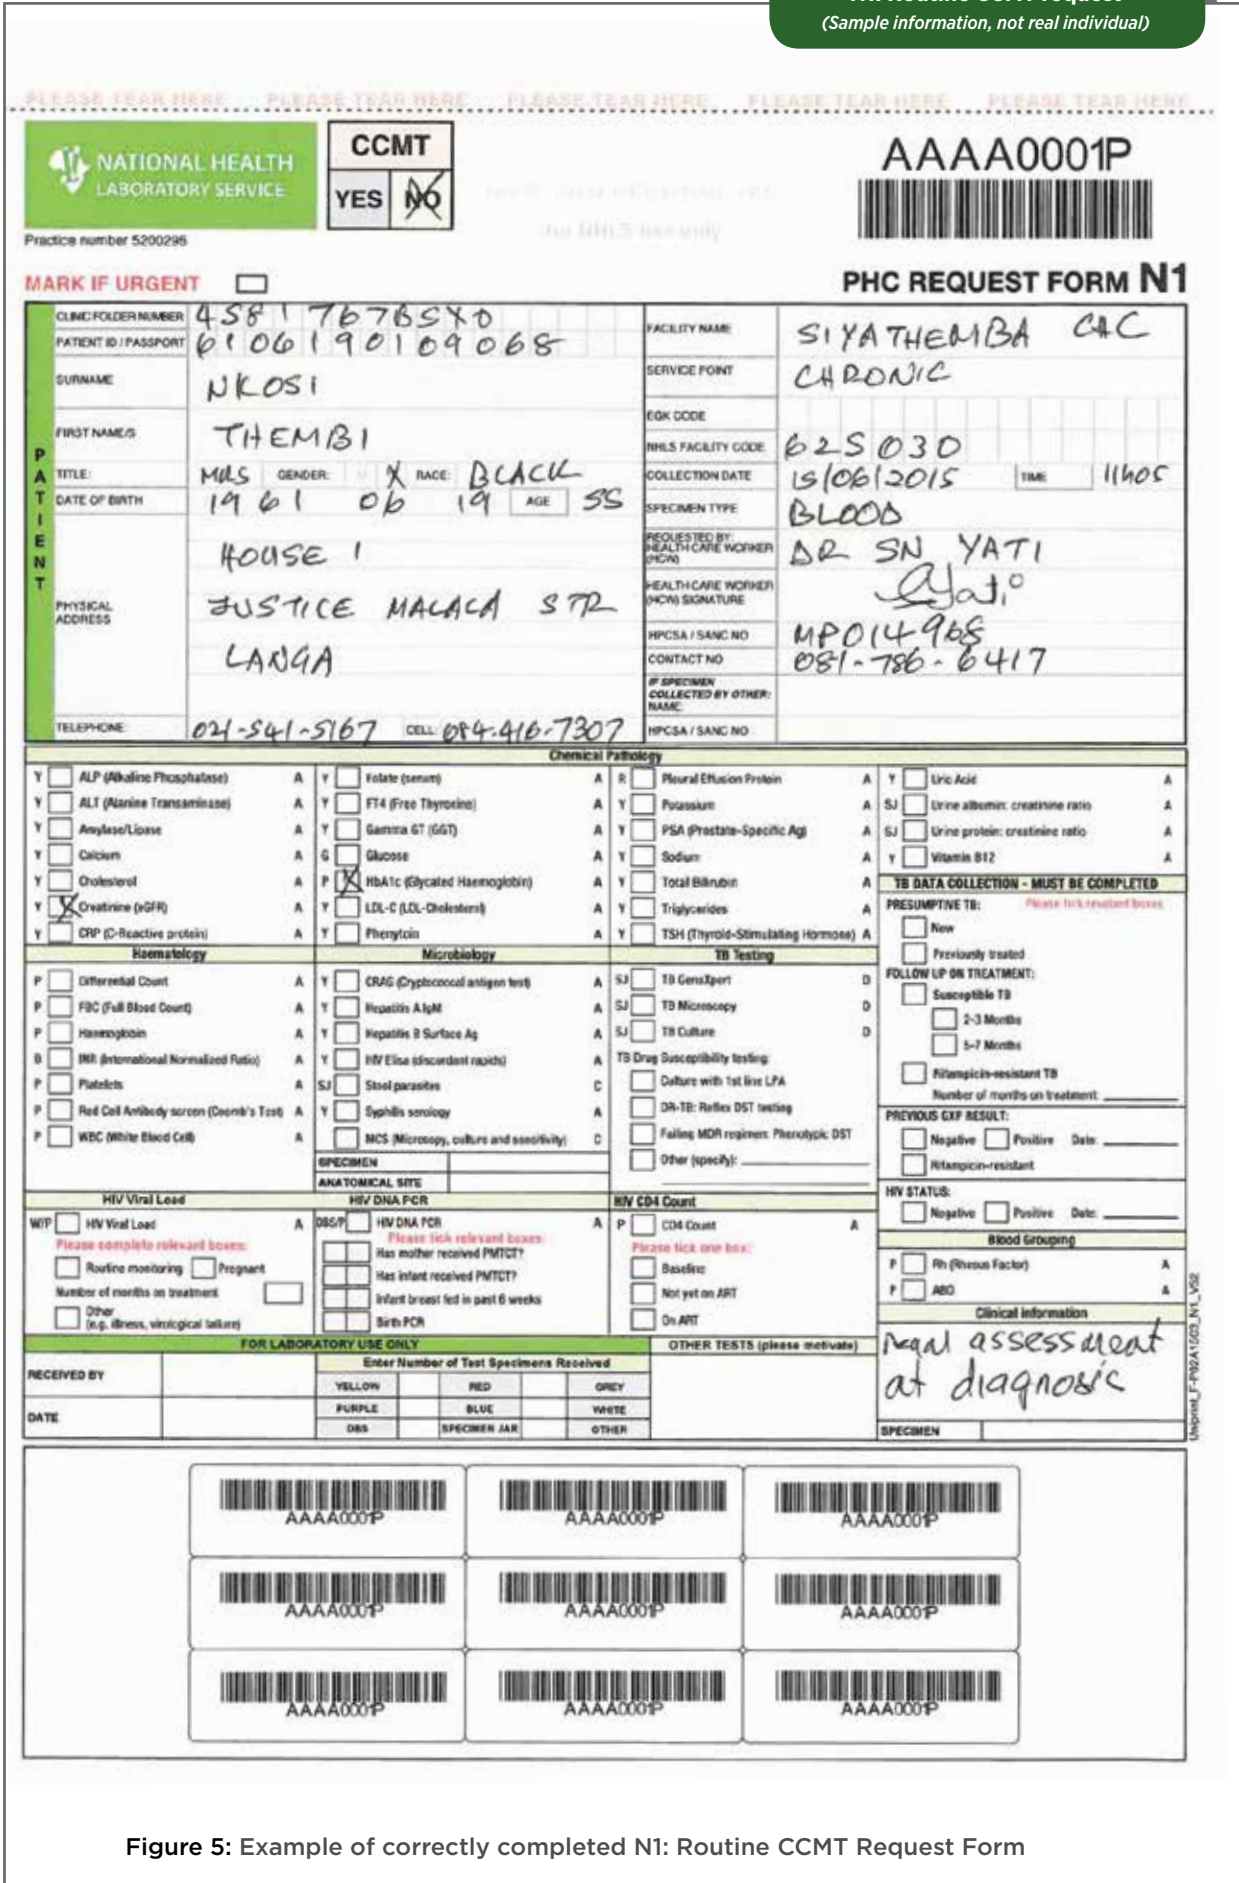 (Sample information, not real individual)
PLEASE TEAR HERE PLEASE TEAR HERE PLEASE TEAR HERE PLEASE TEAR HERE PLEASE TEAR HERE
NATIONAL HEALTH
LABORATORY SERVICE
CCMT
YES NO
AAAA0001P
Practice number 5200296
MARK IF URGENT
PHC REQUEST FORM N1
PATIENT
CLINIC FOLDER NUMBER 4581767BSX0
PATIENT ID / PASSPORT 6106190109068
SURNAME NKOSI
FIRST NAME/S THEMBI
TITLE: MRS GENDER: X RACE: BLACK
DATE OF BIRTH 1961 06 19 AGE 55
PHYSICAL ADDRESS
HOUSE 1
JUSTICE MALALA STR
LANGA
TELEPHONE: 021-541-5167 CELL: 084-416-7307
FACILITY NAME SIYATHEMBA CAC
SERVICE POINT CHRONIC
EGK CODE
NHLS FACILITY CODE 625030
COLLECTION DATE 15/06/2015 TIME 11h05
SPECIMEN TYPE BLOOD
REQUESTED BY: HEALTH CARE WORKER (HCW) DR SN YATI
HEALTH CARE WORKER (HCW) SIGNATURE Yati
HPCSA / SANC NO MP014968
CONTACT NO 081-786-6417
IF SPECIMEN COLLECTED BY OTHER: NAME:
HPCSA / SANC NO
Chemical Pathology
Y ALP (Alkaline Phosphatase) A
Y ALT (Alanine Transaminase) A
Y Amylase/Lipase A
Y Calcium A
Y Cholesterol A
Y Creatinine (eGFR) A
Y CRP (C-Reactive protein) A
Y Folate (serum) A
Y FT4 (Free Thyroxine) A
Y Gamma GT (GGT) A
G Glucose A
P HbA1c (Glycated Haemoglobin) A
Y LDL-C (LDL-Cholesterol) A
Y Phenytoin A
R Pleural Effusion Protein A
Y Potassium A
Y PSA (Prostate-Specific Ag) A
Y Sodium A
Y Total Bilirubin A
Y Triglycerides A
Y TSH (Thyroid-Stimulating Hormone) A
Y Uric Acid A
SJ Urine albumin: creatinine ratio A
SJ Urine protein: creatinine ratio A
Y Vitamin B12 A
Haematology
P Differential Count A
P FBC (Full Blood Count) A
P Haemoglobin A
B INR (International Normalized Ratio) A
P Platelets A
P Red Cell Antibody screen (Coomb's Test) A
P WBC (White Blood Cell) A
Microbiology
Y CRAG (Cryptococcal antigen test) A
Y Hepatitis A IgM A
Y Hepatitis B Surface Ag A
Y HIV Elisa (discordant rapids) A
SJ Stool parasites C
Y Syphilis serology A
MCS (Microsopy, culture and sensitivity) C
SPECIMEN
ANATOMICAL SITE
TB Testing
SJ TB GeneXpert D
SJ TB Microscopy D
SJ TB Culture D
TB Drug Susceptibility testing:
Culture with 1st line LPA
DR-TB: Reflex DST testing
Failing MDR regimen: Phenotypic DST
Other (specify):
TB DATA COLLECTION - MUST BE COMPLETED
PRESUMPTIVE TB: Please tick relevant boxes
New
Previously treated
FOLLOW UP ON TREATMENT:
Susceptible TB
2-3 Months
5-7 Months
Rifampicin-resistant TB
Number of months on treatment:
PREVIOUS GXP RESULT:
Negative Positive Date:
Rifampicin-resistant
HIV STATUS:
Negative Positive Date:
HIV Viral Load
W/P HIV Viral Load A
Please complete relevant boxes:
Routine monitoring Pregnant
Number of months on treatment
Other
(e.g. illness, virological failure)
HIV DNA PCR
DBS/P HIV DNA PCR A
Please tick relevant boxes:
Has mother received PMTCT?
Has infant received PMTCT?
Infant breast fed in past 6 weeks
Birth PCR
HIV CD4 Count
P CD4 Count A
Please tick one box:
Baseline
Not yet on ART
On ART
Blood Grouping
P Rh (Rhesus Factor) A
P ABO A
Clinical information
Renal assessment
at diagnosis
SPECIMEN
FOR LABORATORY USE ONLY
RECEIVED BY
DATE
Enter Number of Test Specimens Received
YELLOW RED GREY
PURPLE BLUE WHITE
DBS SPECIMEN JAR OTHER
OTHER TESTS (please motivate)
Uniprint_F-P02A1503_N1_V52
AAAA0001P AAAA0001P AAAA0001P
AAAA0001P AAAA0001P AAAA0001P
AAAA0001P AAAA0001P AAAA0001P
Figure 5: Example of correctly completed N1: Routine CCMT Request Form